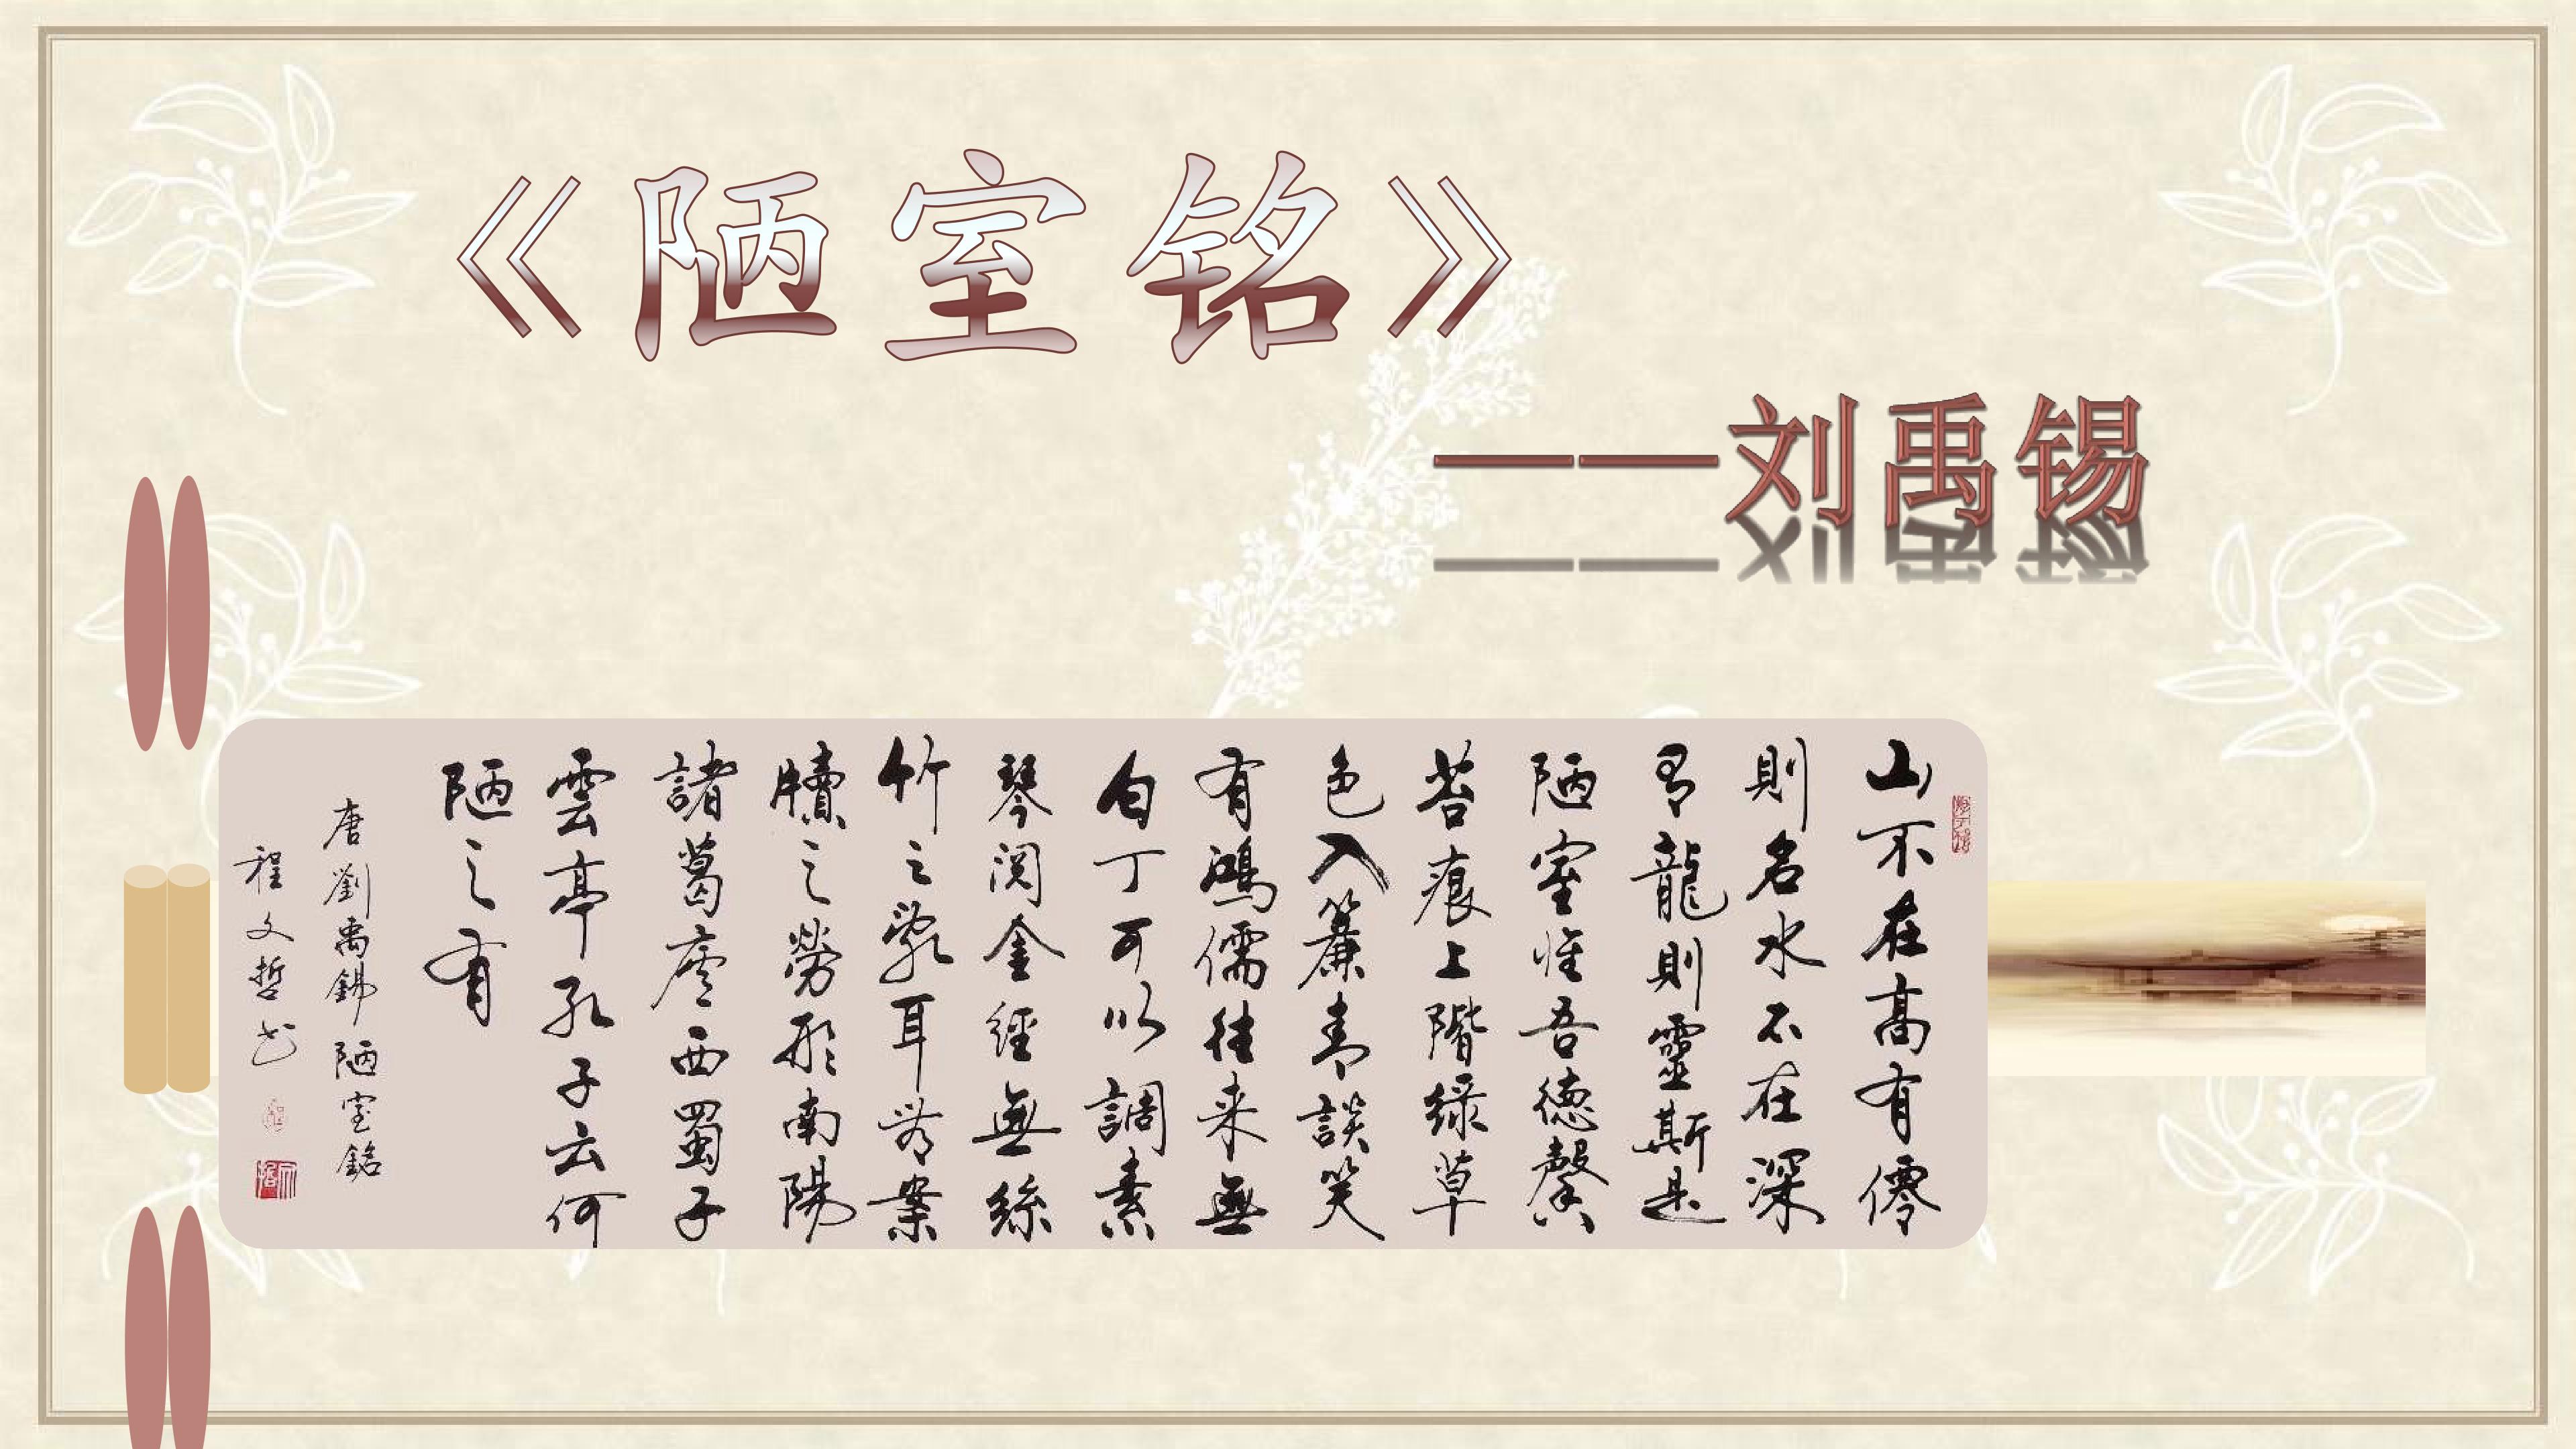 《陋室铭》
——刘禹锡
山不在高有僊
則名水不在深
有龍則靈斯是
陋室惟吾德馨
苔痕上階綠草
色入簾青談笑
有鴻儒往来無
白丁可以調素
琴閱金經無絲
竹之亂耳無案
牘之勞形南陽
諸葛廬西蜀子
雲亭孔子云何
陋之有
唐劉禹錫陋室銘
程文哲书